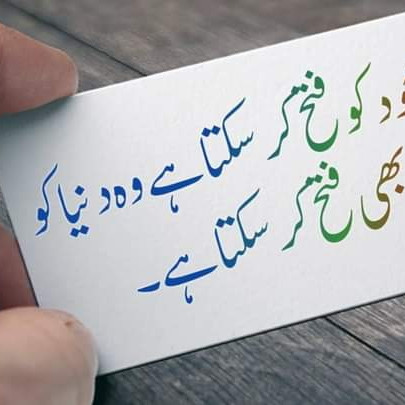 کو فتح کر سکتا ہے وہ دنیا کو
بھی فتح کر سکتا ہے۔